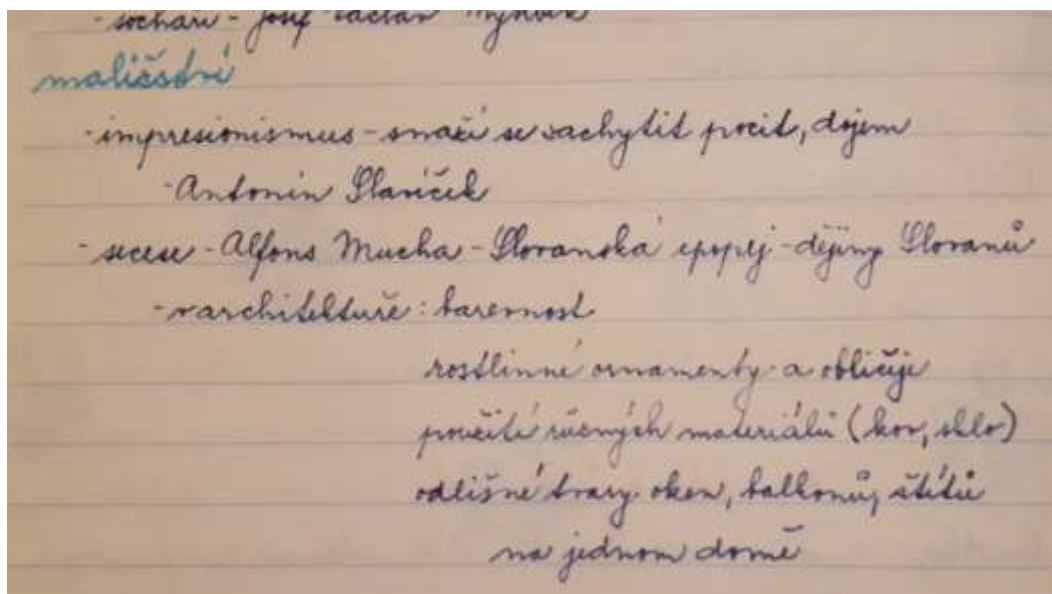 - sochaři - Josef Václav Myslbek
malířství
- impresionismus - snaží se zachytit pocit, dojem
- Antonín Slavíček
- secese - Alfons Mucha - Slovanská epopej - dějiny Slovanů
- v architektuře: barevnost
rostlinné ornamenty a obličeje
použití různých materiálů (kov, sklo)
odlišné tvary oken, balkonů, štítů
na jednom domě